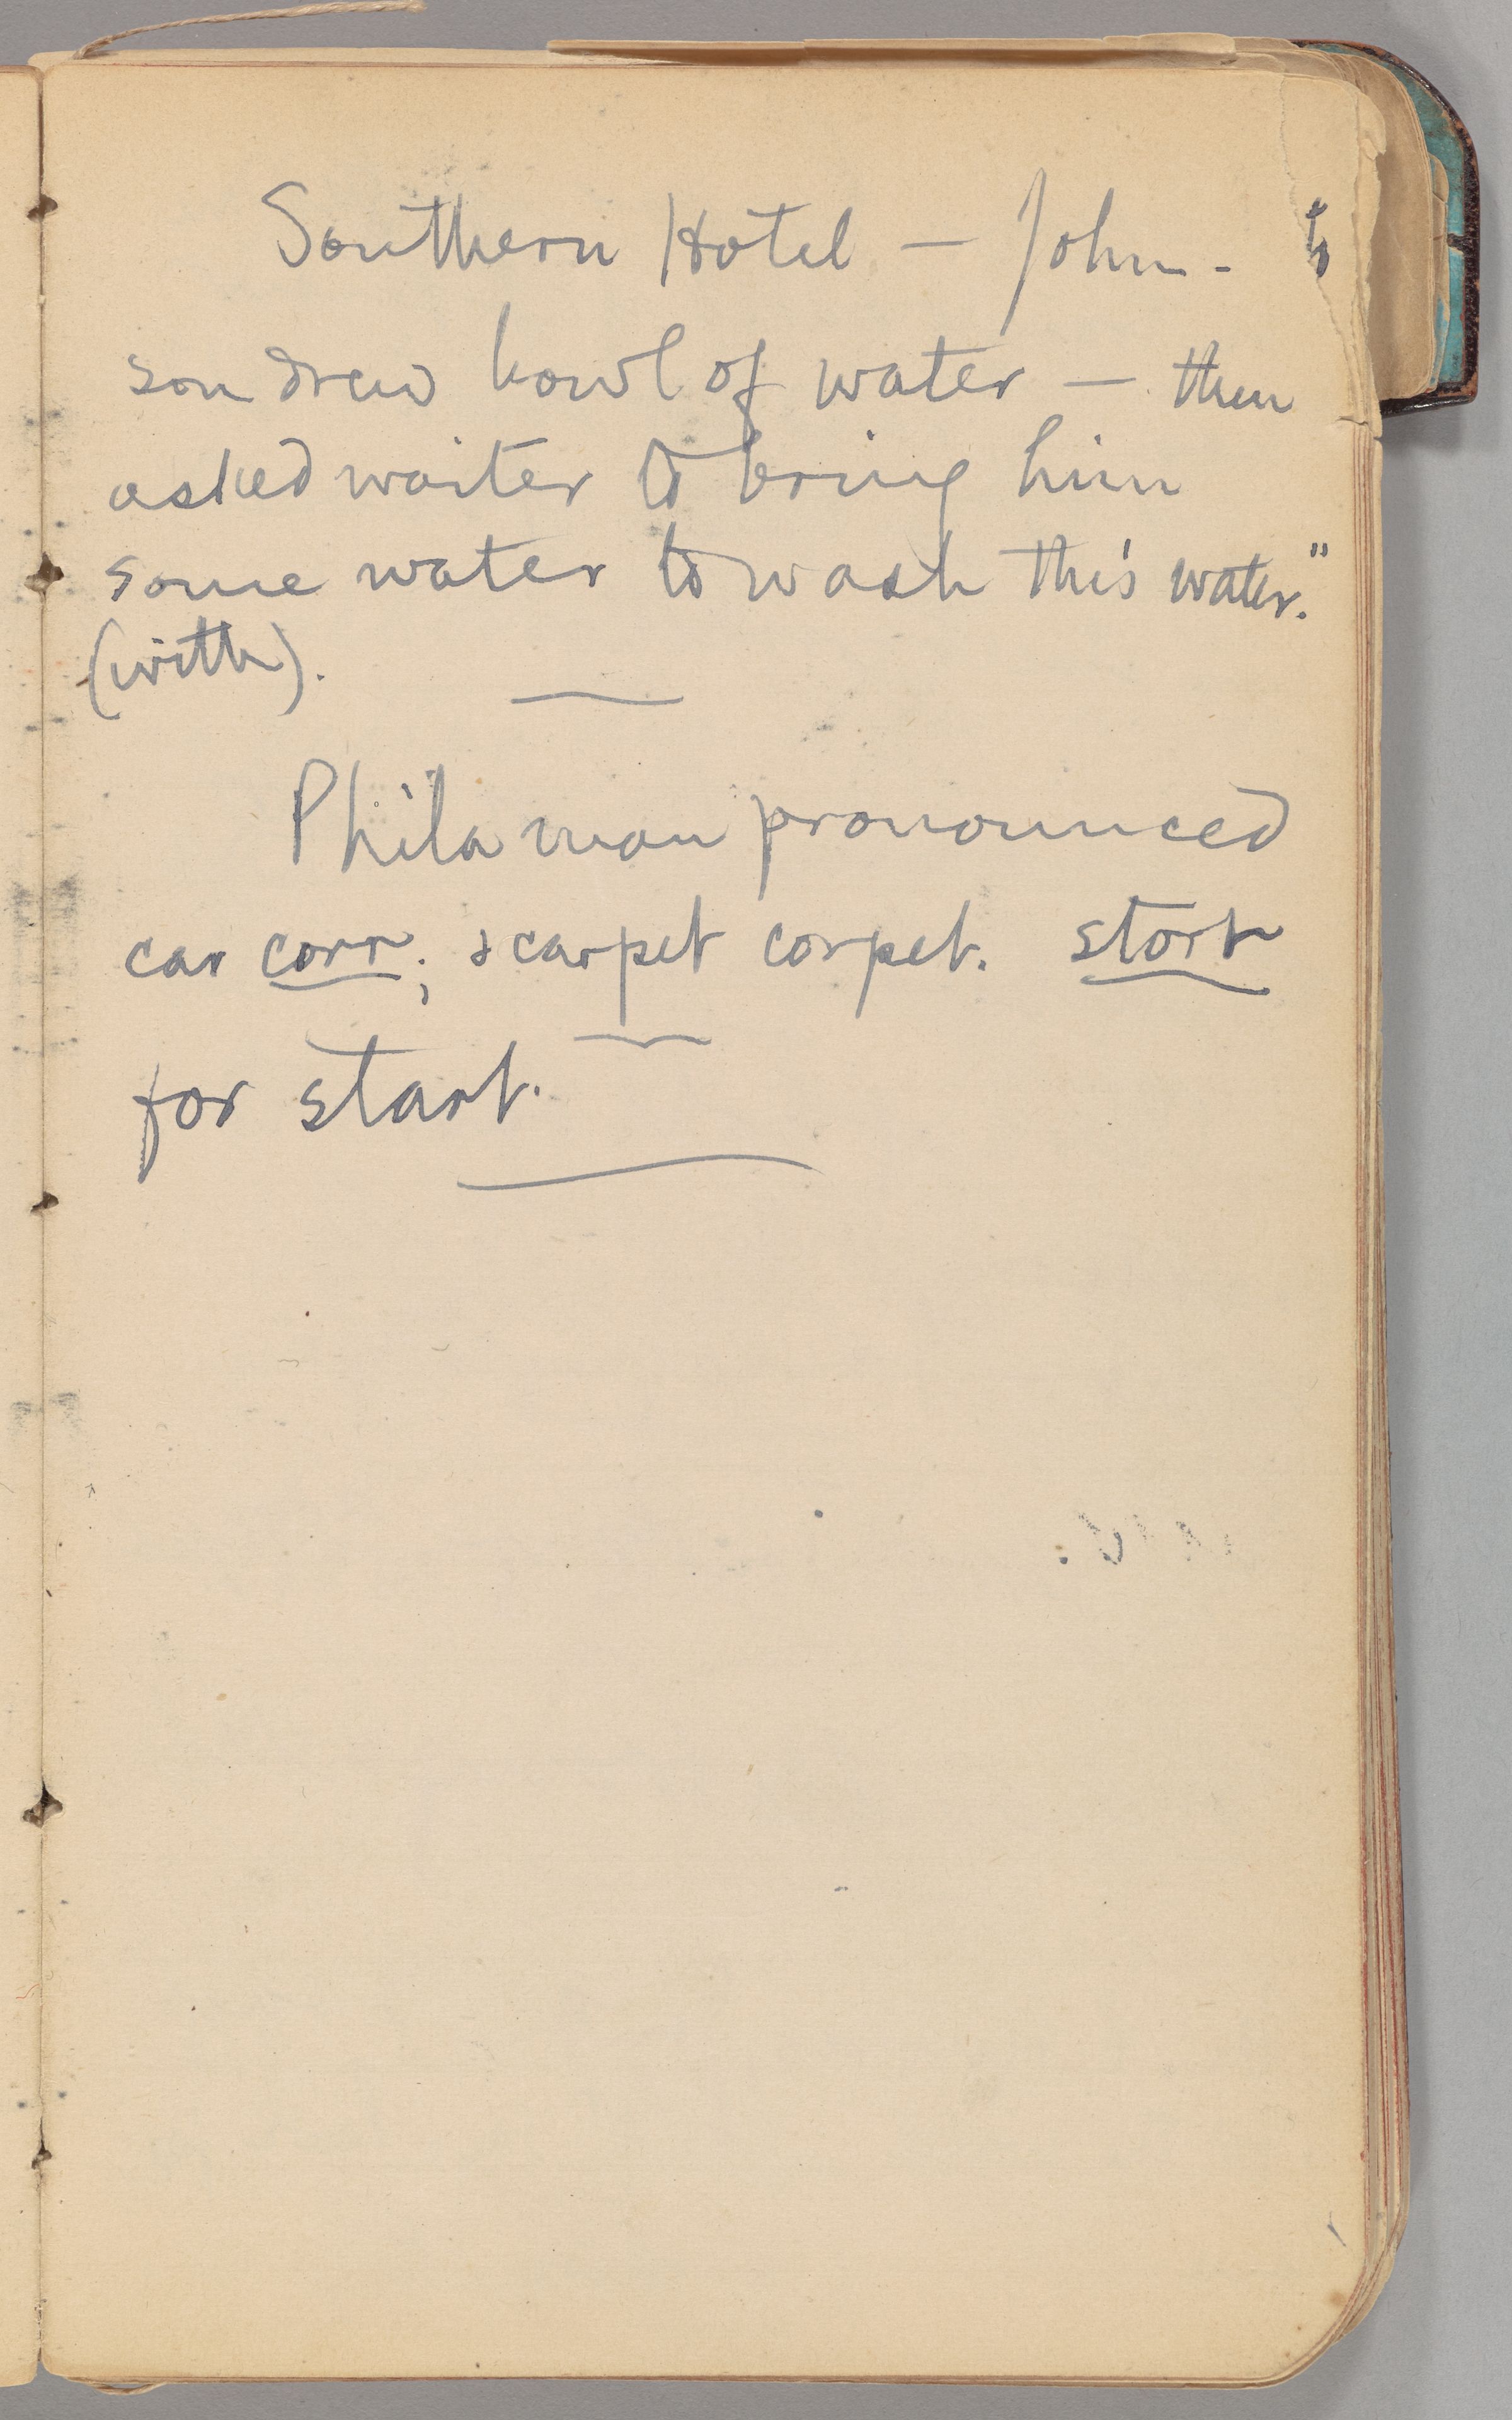 Southern Hotel — John-
son drew bowl of water — then
asked waiter to bring him
some water to wash this water."
(with).
Phila man pronounced
car corr; & carpet corpet. stort
for start.